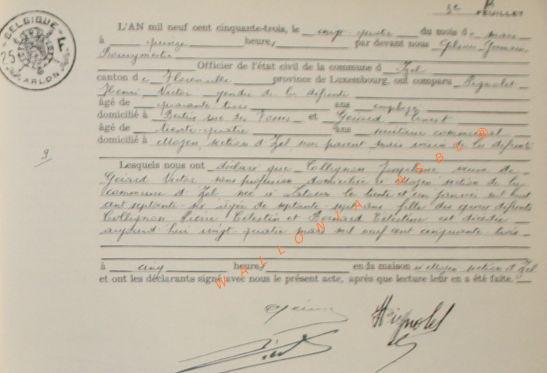 5e FEUILLET
BELGIQUE
ARLON
L'AN mil neuf cent cinquante-trois, le vingt quatre du mois de mars
à quinze heures, par devant nous
Bourgmestre
Officier de l'état civil de la commune d'Izel
canton de Florenville province de Luxembourg, ont comparu Pignolet
Henri Victor gendre de la défunte
âgé de quarante trois ans employé
domicilié à et Gérard Ernest
âgé de trente-quatre ans commercial
domicilié à Moyen section d'Izel non parent mais voisin de la défunte
9
Lesquels nous ont déclaré que Collignon Joséphine veuve de
Gérard Victor sans profession domiciliée à Moyen section de la
commune d'Izel née à le trente et un janvier mil huit
cent septante six âgée de septante sept ans fille des époux défunts
Collignon Pierre Célestin et Célestine est décédée
aujourd'hui vingt quatre mars mil neuf cent cinquante trois
à cinq heures en sa maison à Moyen section d'Izel
et ont les déclarants signé avec nous le présent acte, après que lecture leur en a été faite.
WALLONIA ASBL
HPignolet